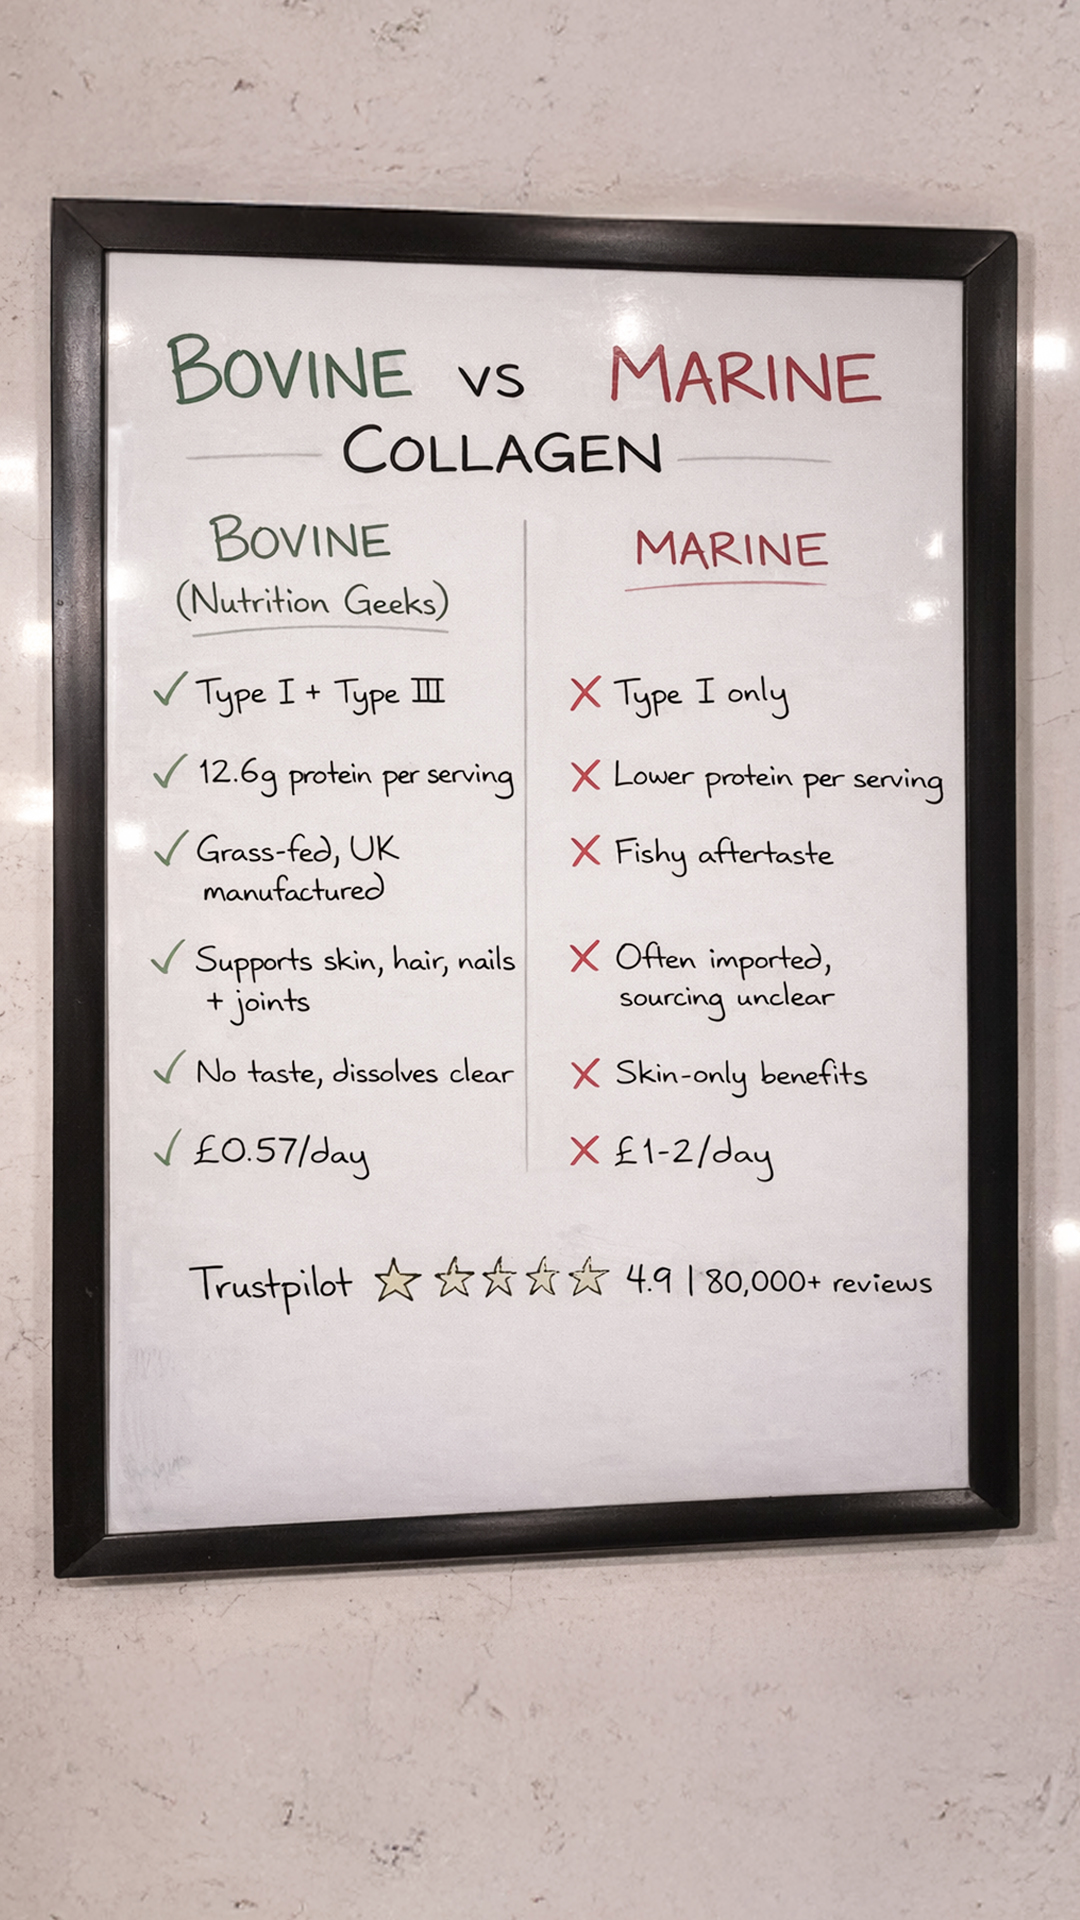 BOVINE vs MARINE
COLLAGEN
BOVINE
(Nutrition Geeks)
✓ Type I + Type III
✓ 12.6g protein per serving
✓ Grass-fed, UK
manufactured
✓ Supports skin, hair, nails
+ joints
✓ No taste, dissolves clear
✓ £0.57/day
MARINE
✗ Type I only
✗ Lower protein per serving
✗ Fishy aftertaste
✗ Often imported,
sourcing unclear
✗ Skin-only benefits
✗ £1-2/day
Trustpilot ☆ ☆ ☆ ☆ ☆ 4.9 | 80,000+ reviews